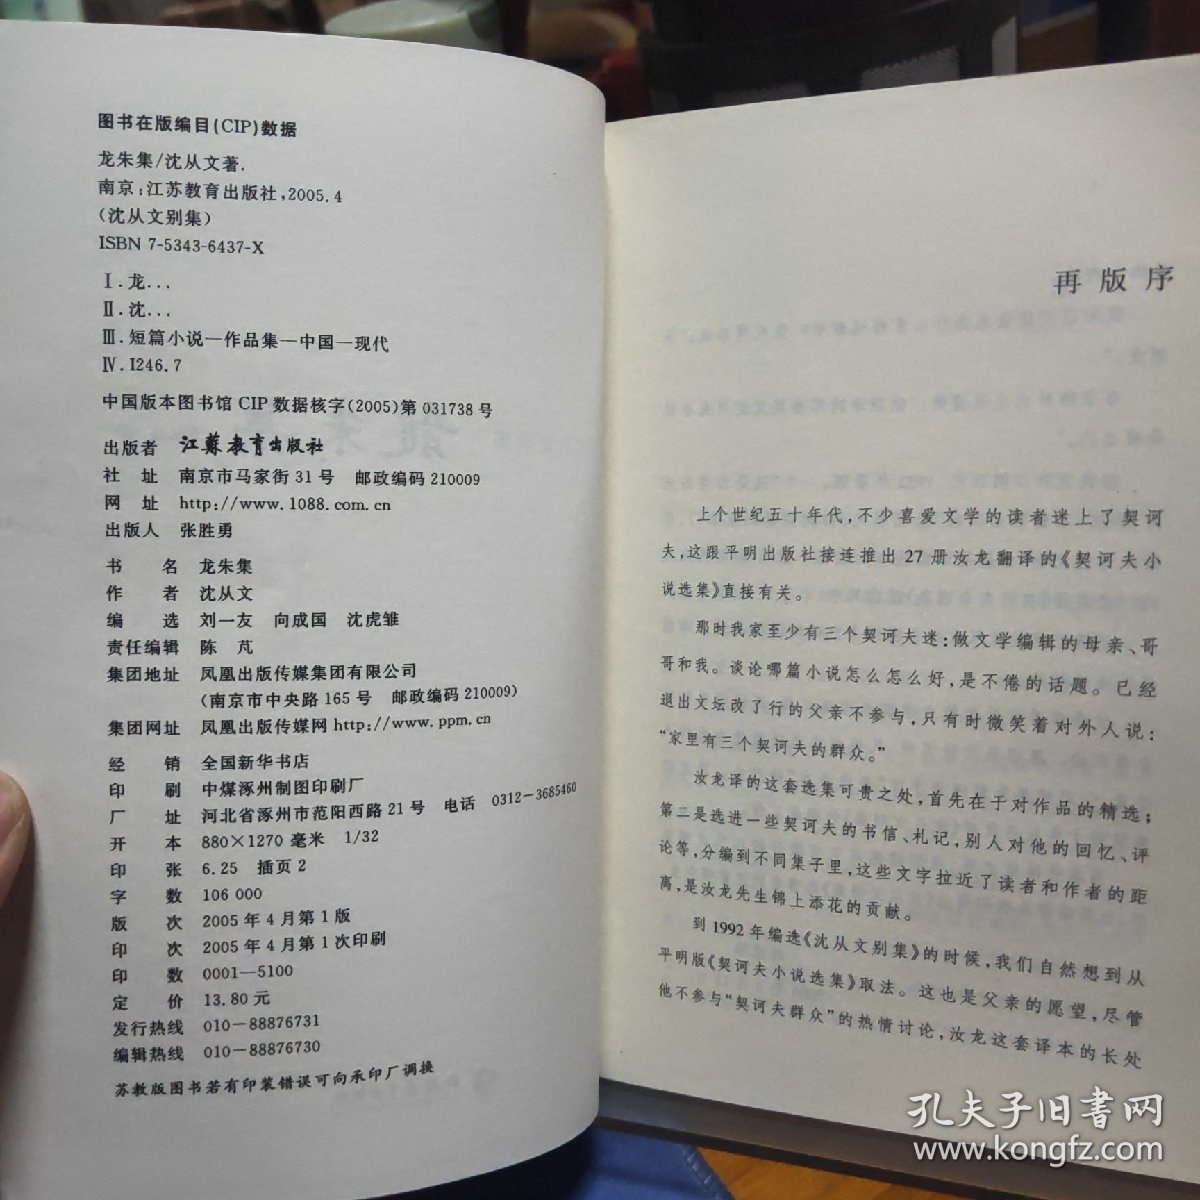 图书在版编目(CIP)数据
龙朱集/沈从文著.
南京:江苏教育出版社,2005.4
(沈从文别集)
ISBN 7-5343-6437-X
Ⅰ.龙...
Ⅱ.沈...
Ⅲ.短篇小说—作品集—中国—现代
Ⅳ.I246.7
中国版本图书馆 CIP 数据核字(2005)第 031738 号
出版者 江苏教育出版社
社 址 南京市马家街 31 号 邮政编码 210009
网 址 http://www.1088.com.cn
出版人 张胜勇
书 名 龙朱集
作 者 沈从文
编 选 刘一友 向成国 沈虎雏
责任编辑 陈 芃
集团地址 凤凰出版传媒集团有限公司
(南京市中央路 165 号 邮政编码 210009)
集团网址 凤凰出版传媒网 http://www.ppm.cn
经 销 全国新华书店
印 刷 中煤涿州制图印刷厂
厂 址 河北省涿州市范阳西路 21 号 电话 0312-3685460
开 本 880×1270 毫米 1/32
印 张 6.25 插页 2
字 数 106 000
版 次 2005 年 4 月第 1 版
印 次 2005 年 4 月第 1 次印刷
印 数 0001—5100
定 价 13.80 元
发行热线 010—88876731
编辑热线 010—88876730
苏教版图书若有印装错误可向承印厂调换
再版序
上个世纪五十年代,不少喜爱文学的读者迷上了契诃
夫,这跟平明出版社接连推出 27 册汝龙翻译的《契诃夫小
说选集》直接有关。
那时我家至少有三个契诃夫迷:做文学编辑的母亲、哥
哥和我。谈论哪篇小说怎么怎么好,是不倦的话题。已经
退出文坛改了行的父亲不参与,只有时微笑着对外人说:
“家里有三个契诃夫的群众。”
汝龙译的这套选集可贵之处,首先在于对作品的精选;
第二是选进一些契诃夫的书信、札记,别人对他的回忆、评
论等,分编到不同集子里,这些文字拉近了读者和作者的距
离,是汝龙先生锦上添花的贡献。
到 1992 年编选《沈从文别集》的时候,我们自然想到从
平明版《契诃夫小说选集》取法。这也是父亲的愿望,尽管
他不参与“契诃夫群众”的热情讨论,汝龙这套译本的长处
孔夫子旧书网
www.kongfz.com